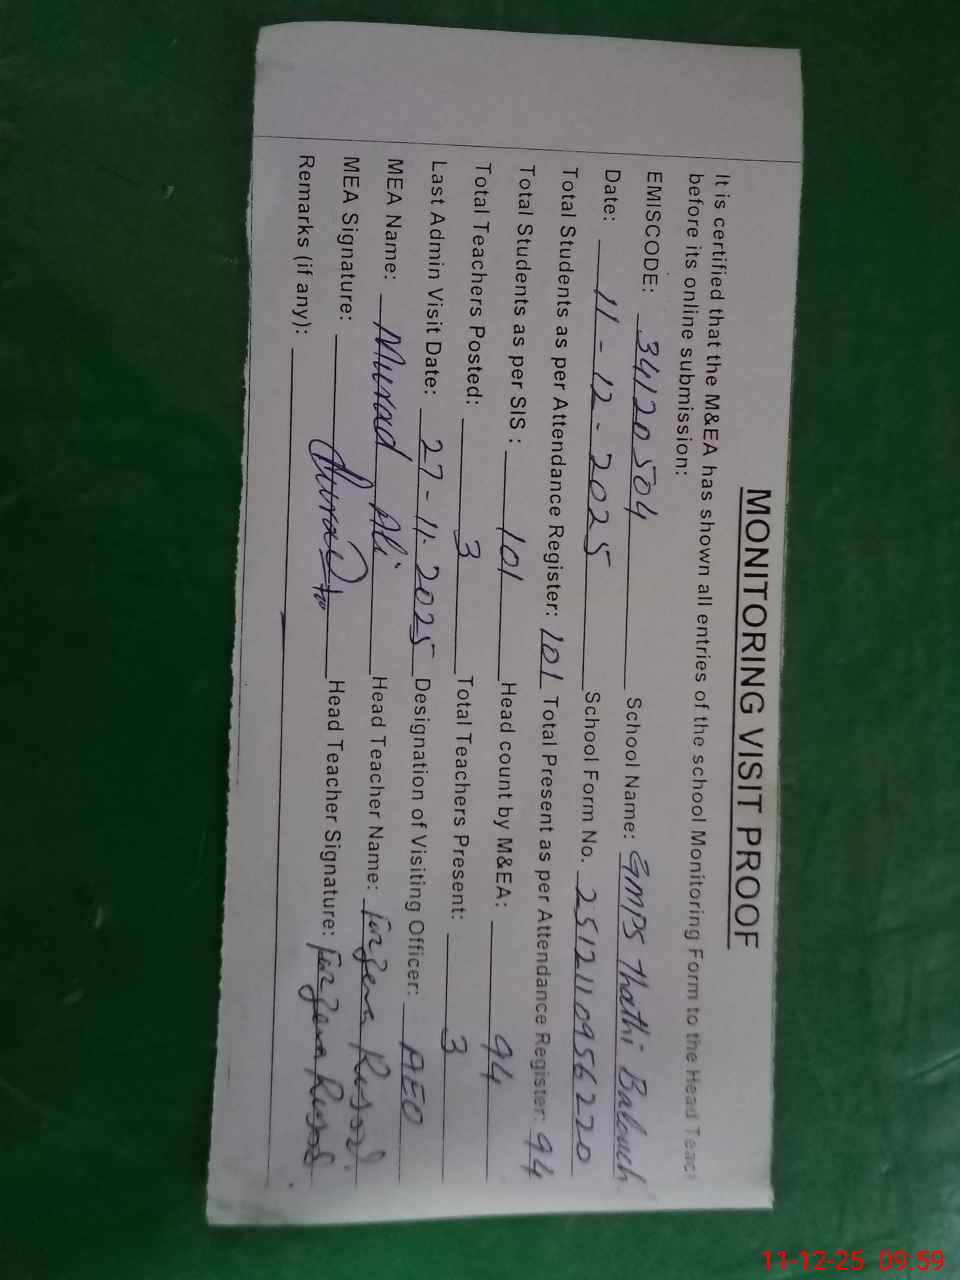 MONITORING VISIT PROOF
It is certified that the M&EA has shown all entries of the school Monitoring Form to the Head Teac
before its online submission:
EMISCODE: 34120504 School Name: GMPS Thathi Balouch
Date: 11-12-2025 School Form No. 2512110956220
Total Students as per Attendance Register: 101 Total Present as per Attendance Register: 94
Total Students as per SIS : 101 Head count by M&EA: 94
Total Teachers Posted: 3 Total Teachers Present: 3
Last Admin Visit Date: 27-11-2025 Designation of Visiting Officer: AEO
MEA Name: Murad Ali Head Teacher Name:
MEA Signature: Head Teacher Signature:
Remarks (if any):
11-12-25 09:59